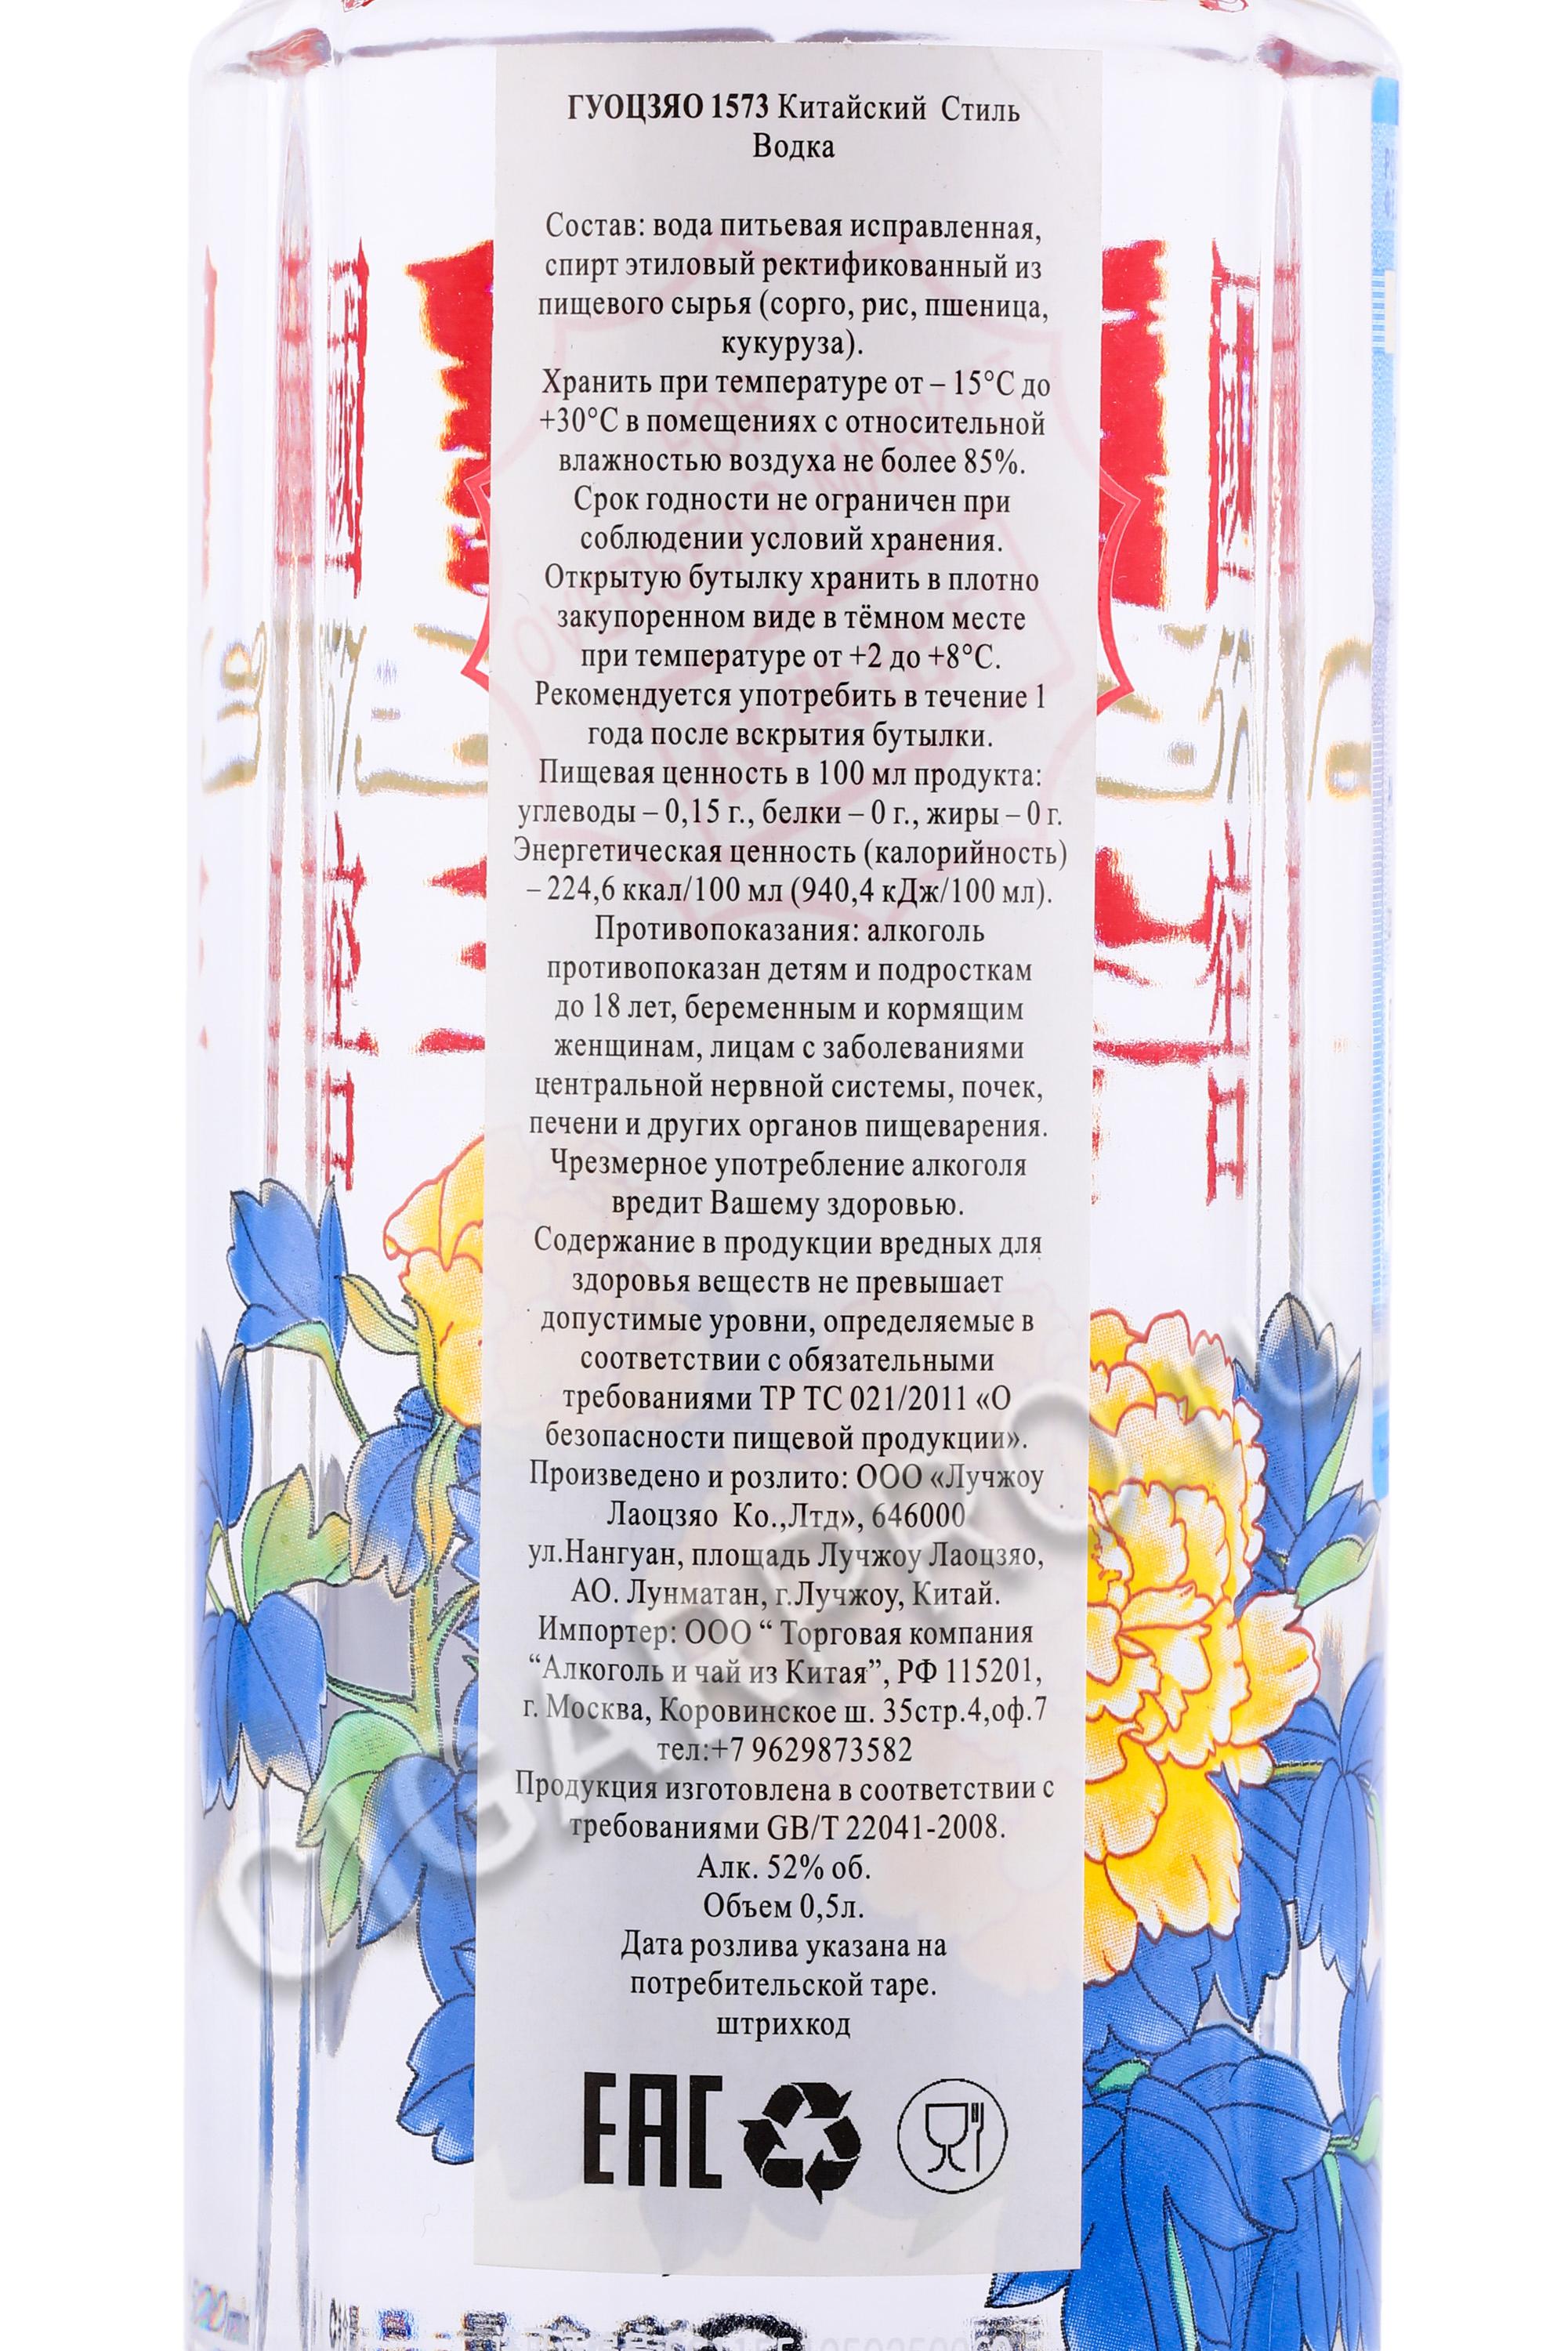 ГУОЦЗЯО 1573 Китайский Стиль
Водка
Состав: вода питьевая исправленная,
спирт этиловый ректификованный из
пищевого сырья (сорго, рис, пшеница,
кукуруза).
Хранить при температуре от – 15°С до
+30°С в помещениях с относительной
влажностью воздуха не более 85%.
Срок годности не ограничен при
соблюдении условий хранения.
Открытую бутылку хранить в плотно
закупоренном виде в тёмном месте
при температуре от +2 до +8°С.
Рекомендуется употребить в течение 1
года после вскрытия бутылки.
Пищевая ценность в 100 мл продукта:
углеводы – 0,15 г., белки – 0 г., жиры – 0 г.
Энергетическая ценность (калорийность)
– 224,6 ккал/100 мл (940,4 кДж/100 мл).
Противопоказания: алкоголь
противопоказан детям и подросткам
до 18 лет, беременным и кормящим
женщинам, лицам с заболеваниями
центральной нервной системы, почек,
печени и других органов пищеварения.
Чрезмерное употребление алкоголя
вредит Вашему здоровью.
Содержание в продукции вредных для
здоровья веществ не превышает
допустимые уровни, определяемые в
соответствии с обязательными
требованиями ТР ТС 021/2011 «О
безопасности пищевой продукции».
Произведено и розлито: ООО «Лучжоу
Лаоцзяо Ко.,Лтд», 646000
ул.Нангуан, площадь Лучжоу Лаоцзяо,
АО. Лунматан, г.Лучжоу, Китай.
Импортер: ООО “ Торговая компания
“Алкоголь и чай из Китая”, РФ 115201,
г. Москва, Коровинское ш. 35стр.4,оф.7
тел:+7 9629873582
Продукция изготовлена в соответствии с
требованиями GB/T 22041-2008.
Алк. 52% об.
Объем 0,5л.
Дата розлива указана на
потребительской таре.
штрихкод
EAC
FOR
OVERSEAS MARKET
CIGARPRO.RU